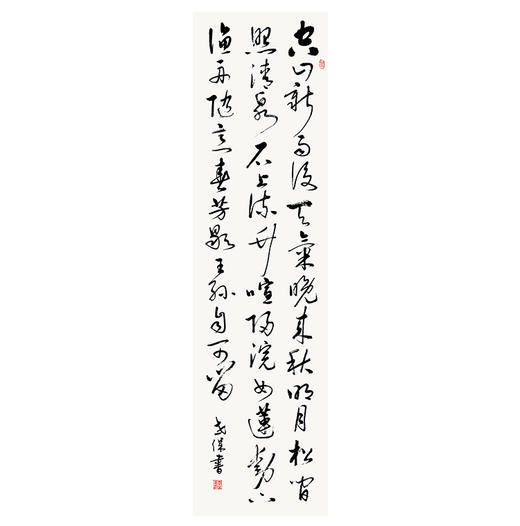 空山新雨後天氣晚來秋明月松間
照清泉石上流竹喧歸浣女蓮動下
漁舟隨意春芳歇王孫自可留
保書